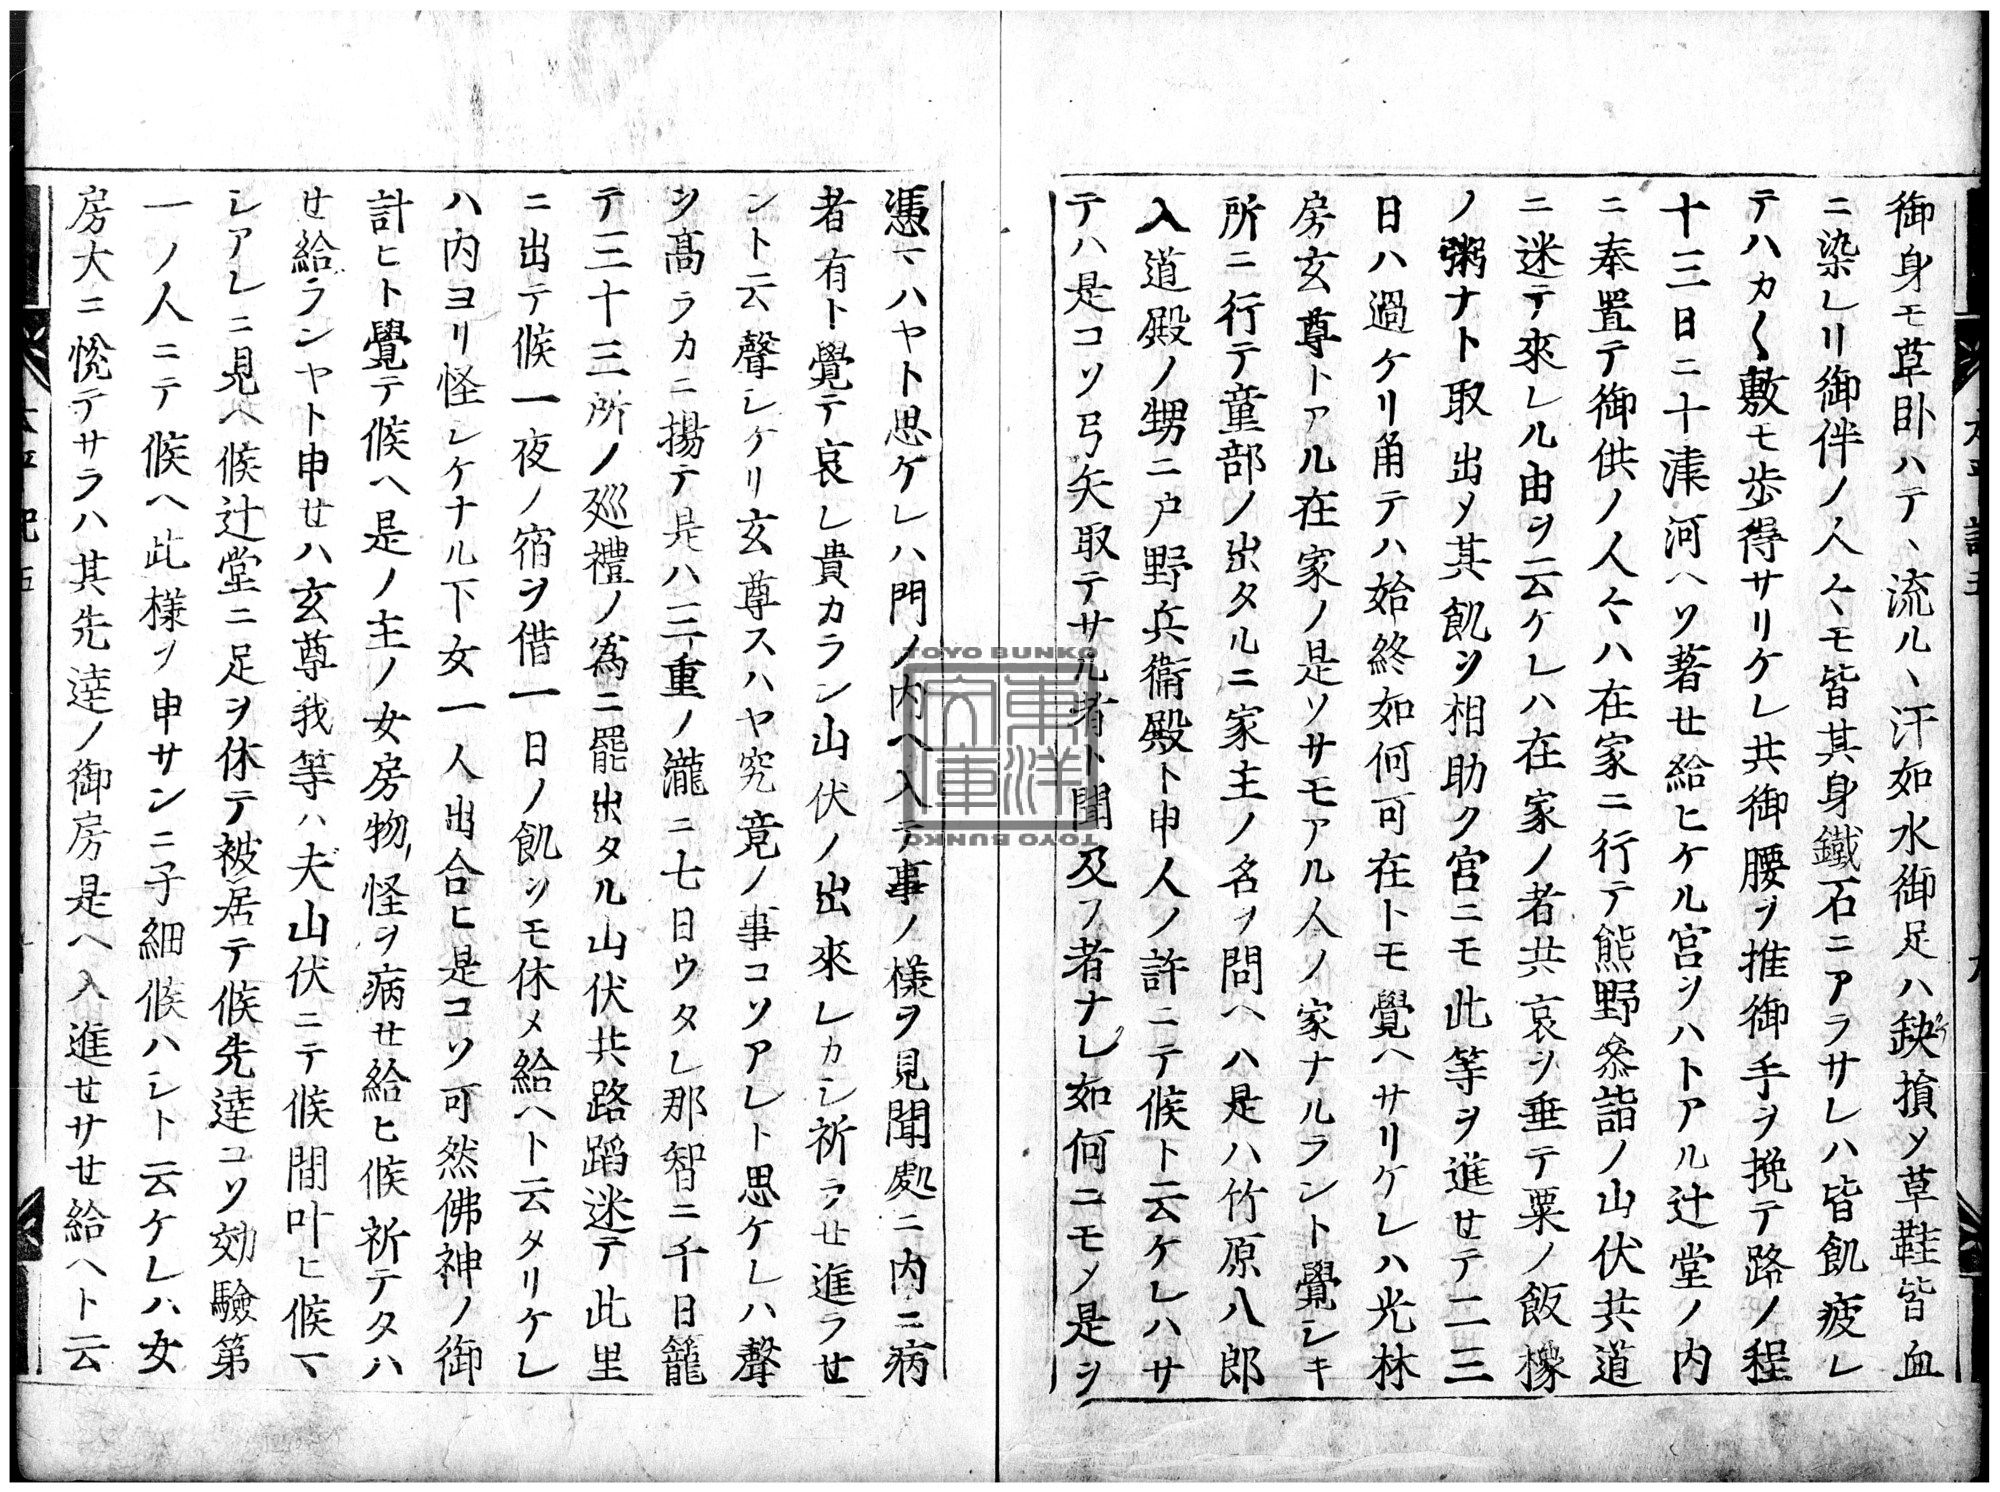 御身モ草臥ハテヽ流ルヽ汗如水御足ハ缺損メ草鞋皆血
ニ染レリ御伴ノ人々モ皆其身鐵石ニアラサレハ皆飢疲レ
テハカ〱敷モ歩得サリケレ共御腰ヲ推御手ヲ挽テ路ノ程
十三日ニ十津河ヘソ著セ給ヒケル宮ヲハトアル辻堂ノ内
ニ奉置テ御供ノ人々ハ在家ニ行テ熊野參詣ノ山伏共道
ニ迷テ來レル由ヲ云ケレハ在家ノ者共哀ヲ垂テ粟ノ飯橡
ノ粥ナト取出メ其飢ヲ相助ク宮ニモ此等ヲ進セテ二三
日ハ過ケリ角テハ始終如何可在トモ覺ヘサリケレハ光林
房玄尊トアル在家ノ是ソサモアル人ノ家ナルラント覺シキ
所ニ行テ童部ノ出タルニ家主ノ名ヲ問ヘハ是ハ竹原八郎
入道殿ノ甥ニ戸野兵衞殿ト申人ノ許ニテ候ト云ケレハサ
テハ是コソ弓矢取テサル者ト聞及フ者ナレ如何ニモメ是ヲ
憑マハヤト思ケレハ門ノ内ヘ入テ事ノ樣ヲ見聞処ニ内ニ病
者有ト覺テ哀レ貴カラン山伏ノ出來レカシ祈ラセ進ラセ
ント云聲シケリ玄尊スハヤ究竟ノ事コソアレト思ケレハ聲
ヲ高ラカニ揚テ是ハ三重ノ瀧ニ七日ウタレ那智ニ千日籠
テ三十三所ノ廵禮ノ爲ニ罷出タル山伏共路蹈迷テ此里
ニ出テ候一夜ノ宿ヲ借一日ノ飢ヲモ休メ給ヘト云タリケレ
ハ内ヨリ怪シケナル下女一人出合ヒ是コソ可然佛神ノ御
計ヒト覺テ候ヘ是ノ主ノ女房物怪ヲ病セ給ヒ候祈テタハ
セ給ランヤト申セハ玄尊我等ハ夫山伏ニテ候間叶ヒ候マ
シアレニ見ヘ候辻堂ニ足ヲ休テ被居テ候先達コソ効驗第
一ノ人ニテ候ヘ此樣ヲ申サンニ子細候ハシト云ケレハ女
房大ニ悅テサラハ其先達ノ御房是ヘ入進セサセ給ヘト云
太平記五
TOYO BUNKO
東洋文庫
TOYO BUNKO